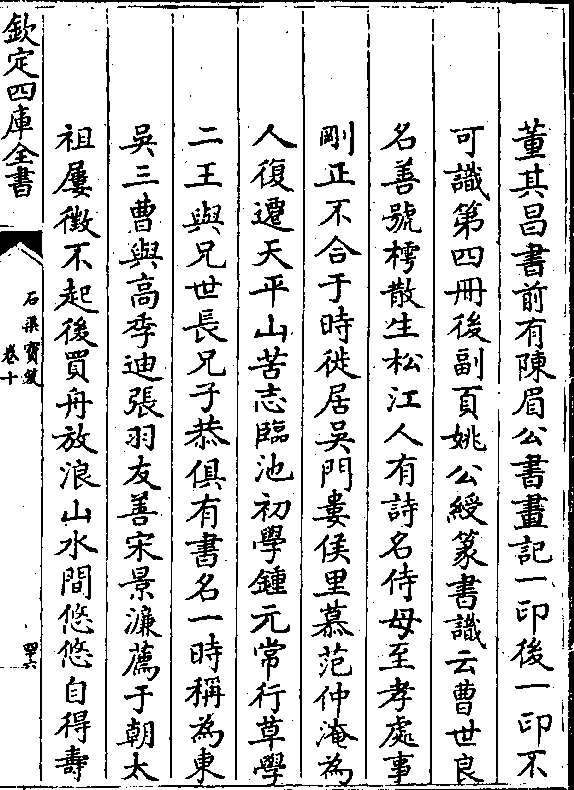 董其昌書前有陳眉公書畫記一印後一印不
可識第四冊後副頁姚公綬篆書識云曹世良
名善號樗散生松江人有詩名侍母至孝處事
剛正不合于時徙居吳門婁侯里慕范仲淹為
人復遷天平山苦志臨池初學鍾元常行草學
二王與兄世長兄子恭俱有書名一時稱為東
吳三曹與高季迪張羽友善宋景濂薦于朝太
祖屢徴不起後買舟放浪山水間悠悠自得壽
欽定四庫全書
石渠寶笈
卷十
四六